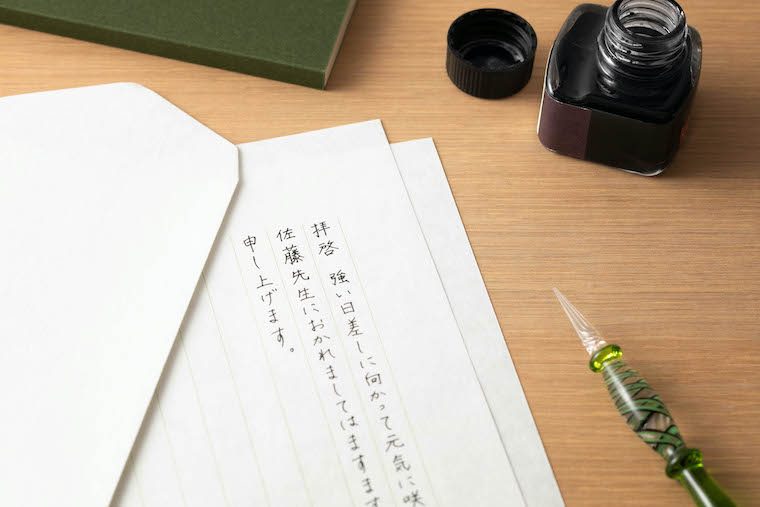 拝啓 強い日差しに向かって元気に咲
佐藤先生におかれましてはますます
申し上げます。